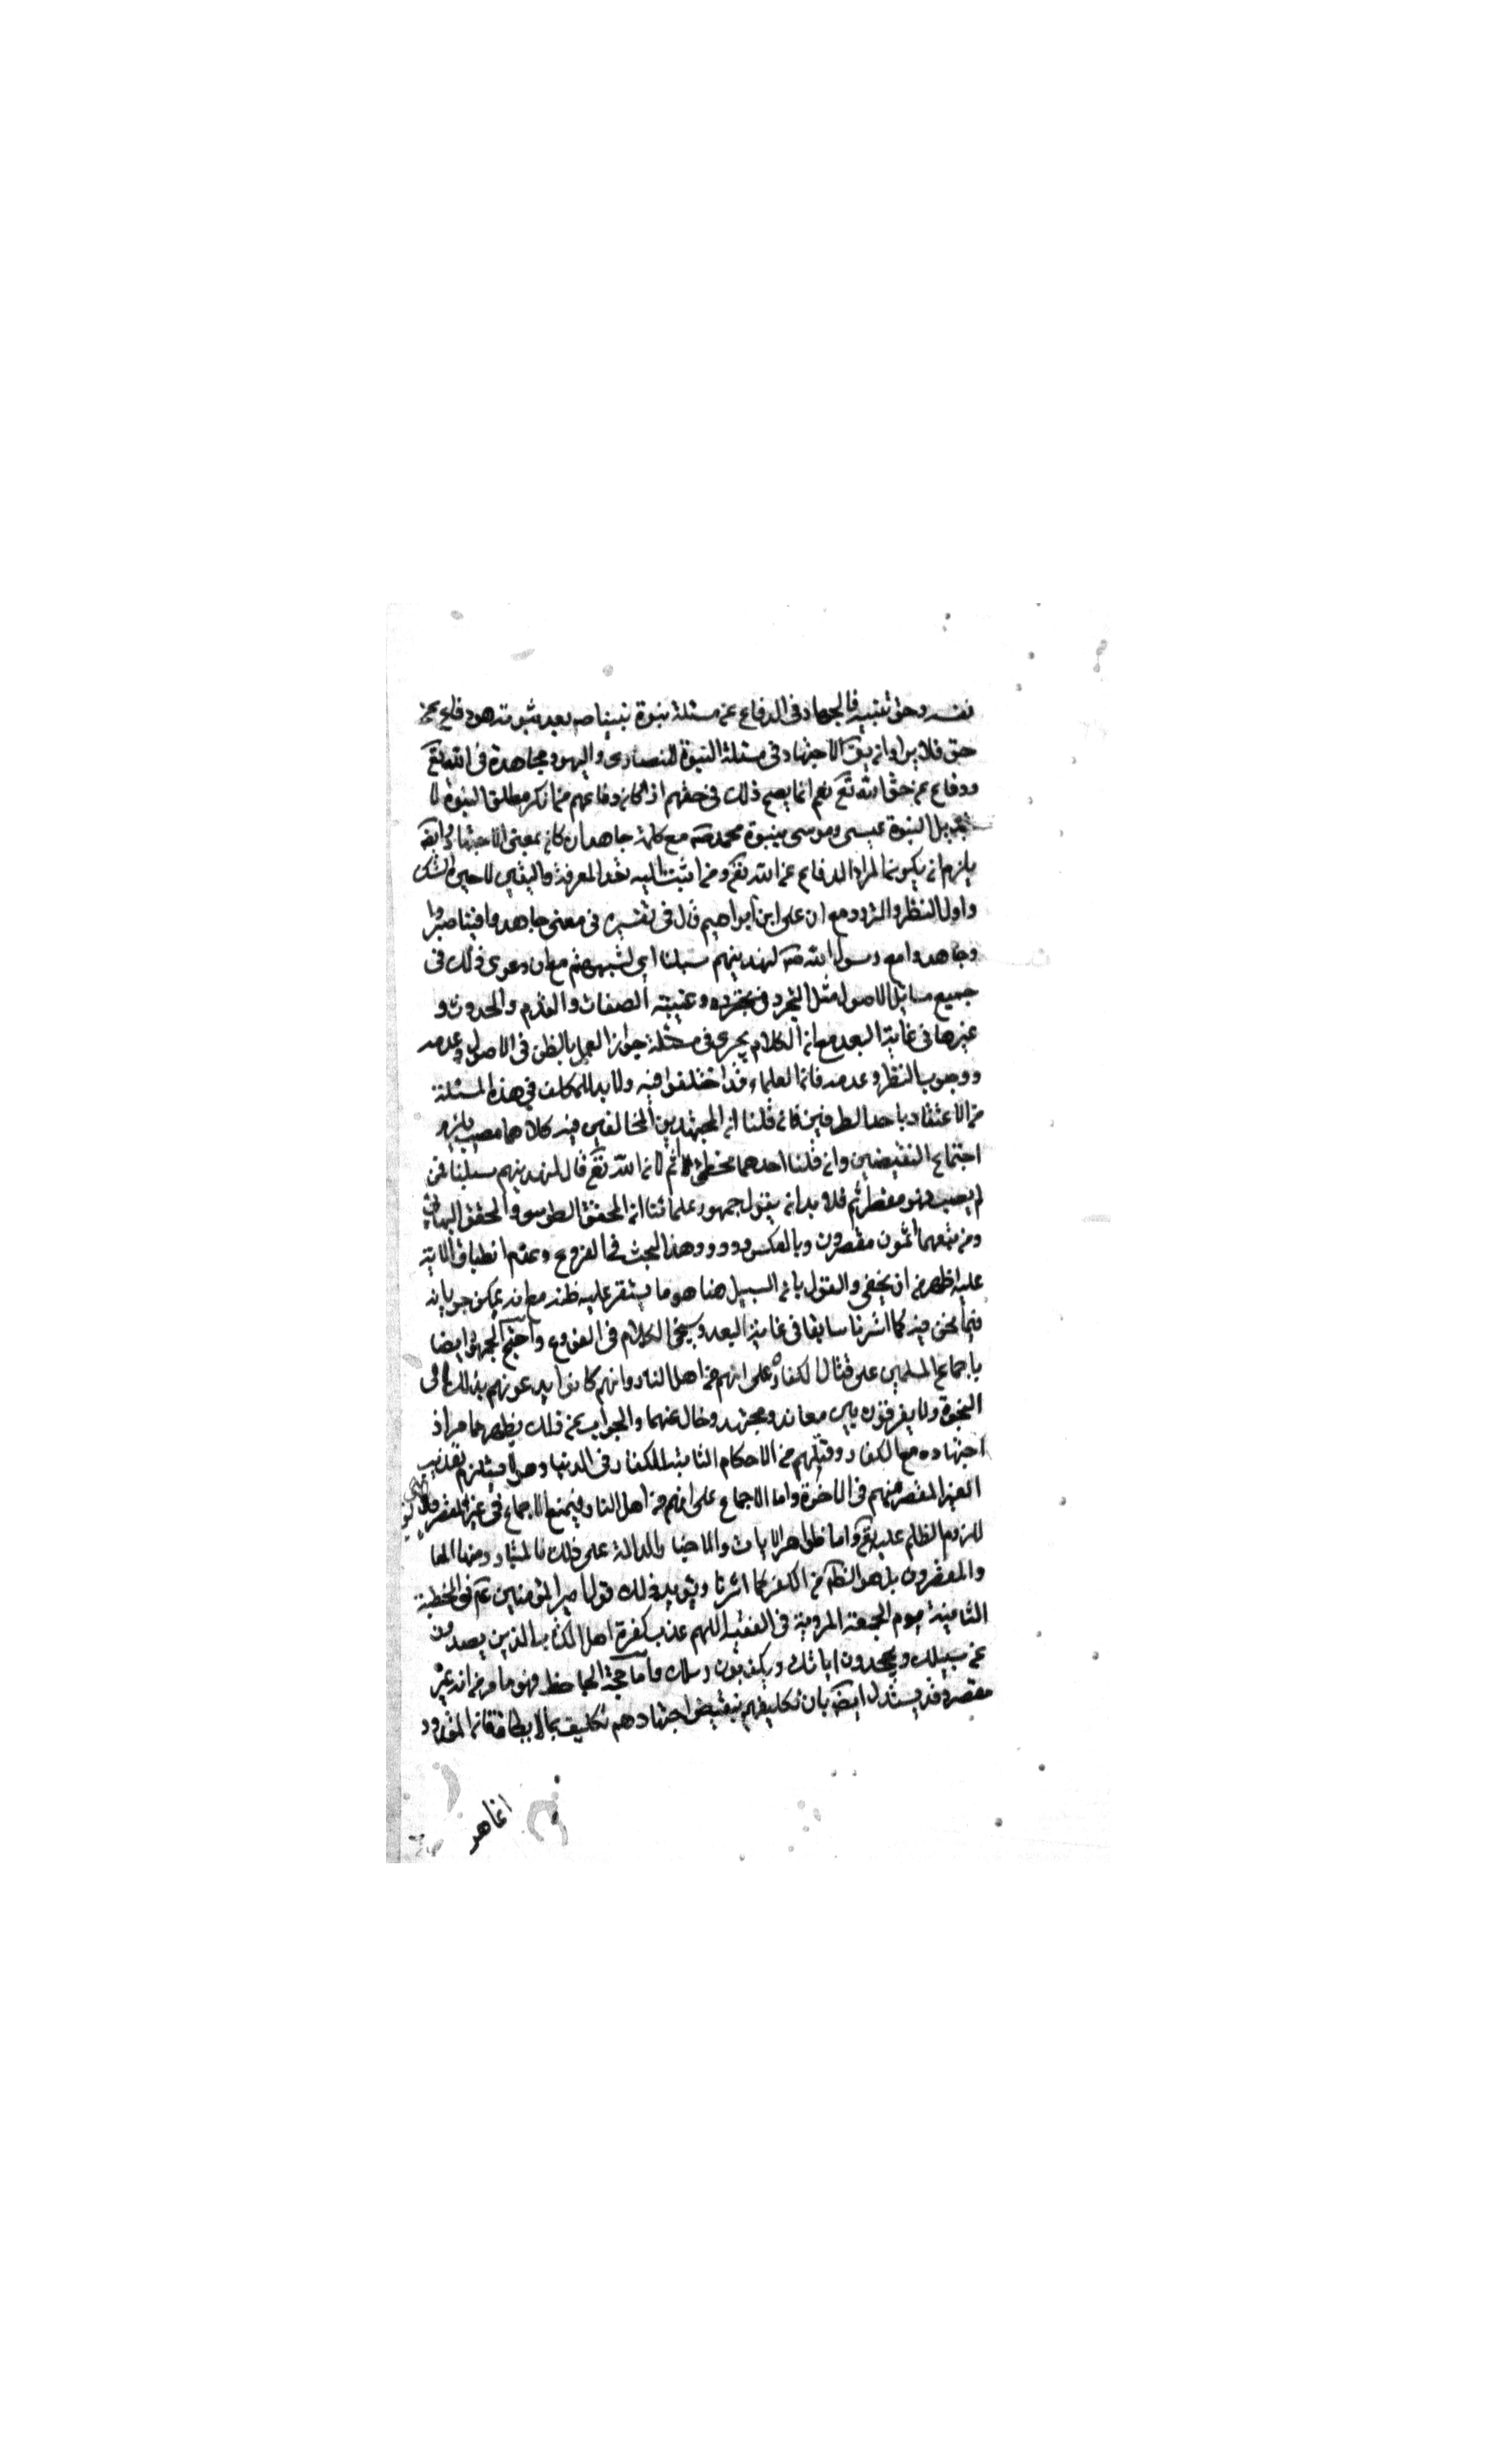 نفسه وحق نبيه فالجهاد فى الدفاع عن مسئلة نبوة نبينا ص بعد ثبوته هو دفاع عن
حق فلا يراد انه يق الاجتهاد فى مسئلة النبوة للنصارى واليهود مجاهدة فى الله تع
ودفاع عن حق الله تع نعم انما يصح ذلك فى حقهم اذا كان دفاعهم من انكر مطلق النبوة لا
تبديل النبوة عيسى وموسى بنبوة محمد ص مع كلمة جاهد ان كان بمعنى الاجتهاد وايض
يلزم ان يكون المراد الدفاع عن الله تع ومن اثبت اليه بعد المعرفة واليقين لا حين الشك
واول النظر والتردد مع ان على ابن ابراهيم قال فى تفسيره فى معنى جاهدوا فينا صبروا
وجاهدوا مع رسول الله ص لنهدينهم سبلنا اى لنثبتنهم مع ان دعوى ذلك فى
جميع مسائل الاصول مثل التجرد وعينية الصفات والقدم والحدوث و
غيرها فى غاية البعد مع ان الكلام يجرى فى مسئلة جواز العمل بالظن فى الاصول وعدمه
ووجوب النظر وعدمه فان العلماء قد اختلفوا فيه ولا بد للمكلف فى هذه المسئلة
من الاعتقاد باحد الطرفين فان قلنا ان المجتهدين المخالفين فيه كلاهما مصيب يلزم
اجتماع النقيضين وان قلنا احدهما مخطئ اثم لان الله تع قال لنهدينهم سبلنا فمن
لم يصب فهو مقصر اثم فلا بد ان يقول جمهور علمائنا ان المحقق الطوسى والمحقق البهائى
ومن تبعهما اثمون مقصرون وبالعكس وهذا البحث فى الفروع وعدم انطباق الاية
عليه اظهر من ان يخفى والقول بان السبيل هنا هو ما يستقر عليه ظنه مع انه يمكن جريانه
فيما نحن فيه كما اشرنا سابقا فى غاية البعد وسيجئ الكلام فى الفروع واحتج الجمهور ايضا
باجماع المسلمين على قتال الكفار وعلى انهم من اهل النار وانهم كانوا يدعونهم بذلك الى
النجوة ولا يفرقون بين معاند ومجتهد وخال عنهما والجواب عن ذلك يظهر مما مر اذ
اجتهاده مع الكفار وقتلهم من الاحكام الثابتة للكفار فى الدنيا وهو لا يستلزم تعذيب
الغير المقصر منهم فى الاخرة واما الاجماع على انهم من اهل النار فيمنع الاجماع فى غير المقصر
للزوم الظلم عليه تع واما ظواهر الايات والاخبار الدالة على ذلك فالمتبادر منها
والمقصرون بل هو الظ من الكفر كما اشرنا ويؤيد ذلك قول امير المؤمنين ع فى الخطبة
الثانية يوم الجمعة المروية فى الفقيه اللهم عذب كفرة اهل الكتاب الذين يصدون
عن سبيلك ويجحدون اياتك ويكذبون رسلك واما حجة الجاحظ فهو ما مر من انه غير
مقصر وقد يستدل ايض بان تكليفهم بنقيض اجتهادهم تكليف بما لا يطاق فان المقدور
انما هو